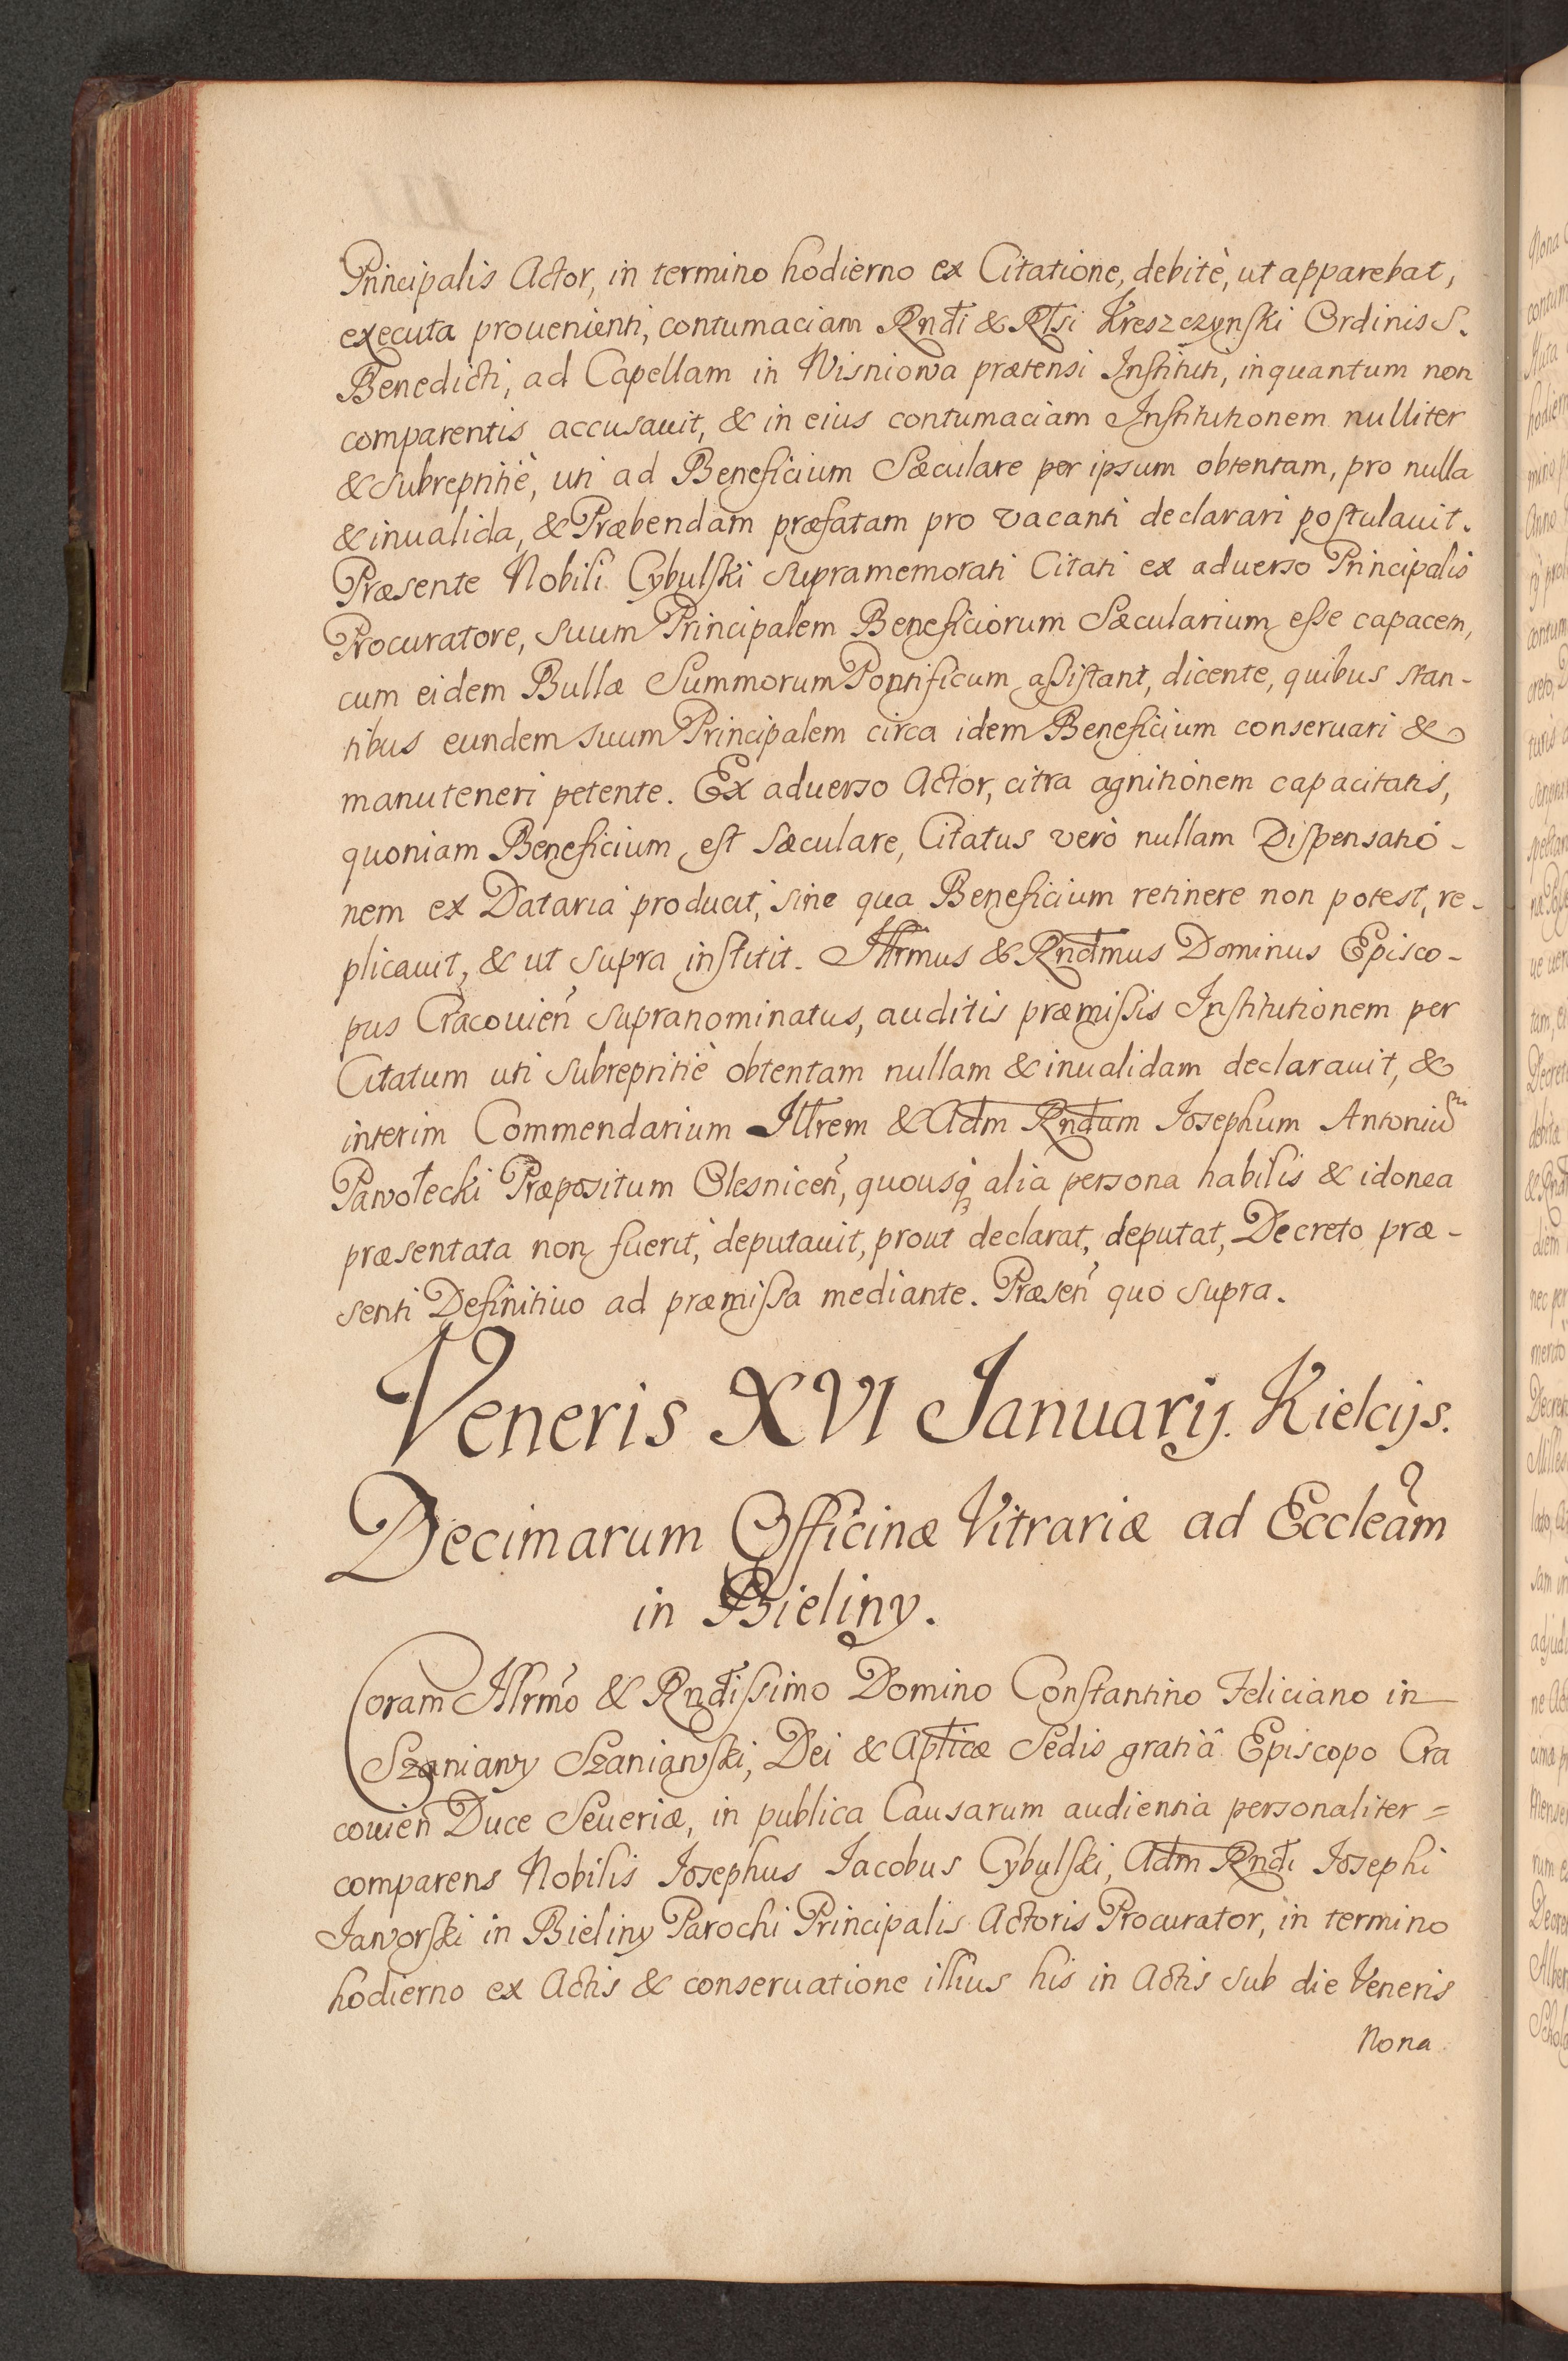 Principalis Actor, in termino hodierno ex Citatione, debitè, ut apparebat,
executa prouenienti, contumaciam Rndi & Rlsi Kreszczynski Ordinis S.
Benedicti, ad Capellam in Wisniowa prætensi Instituti, inquantum non
comparentis accusauit, & in eius contumaciam Institutionem nulliter
& subreptitiè, uti ad Beneficium Sæculare per ipsum obtentam, pro nulla
& inualida, & Præbendam præfatam pro vacanti declarari postulauit.
Præsente Nobili Cybulski supramemorati Citati ex aduerso Principalis
Procuratore, suum Principalem Beneficiorum Sæcularium esse capacem,
cum eidem Bullæ Summorum Pontificum assistant, dicente, quibus stan-
tibus eundem suum Principalem circa idem Beneficium conseruari &
manuteneri petente. Ex aduerso Actor, citra agnitionem capacitatis,
quoniam Beneficium est sæculare, Citatus verò nullam Dispensatio-
nem ex Dataria producit, sine qua Beneficium retinere non potest, re-
plicauit, & ut supra institit. Illrmus & Rndmus Dominus Episco-
pus Cracouien̄ supranominatus, auditis præmissis Institutionem per
Citatum uti subreptitiè obtentam nullam & inualidam declarauit, &
interim Commendarium Illrem & Adm Rndum Iosephum Antoniū
Pawołecki Præpositum Olesnicen̄, quousq alia persona habilis & idonea
præsentata non fuerit, deputauit, prout declarat, deputat, Decreto præ-
senti Definitiuo ad præmissa mediante. Præsen̄ quo supra.
Veneris XVI Januarij. Kielcijs.
Decimarum Officinæ Vitrariæ ad Eccleam
in Bieliny.
Coram Illrmo & Rndissimo Domino Constantino Feliciano in
Szaniawy Szaniawski, Dei & Aplicæ Sedis gratiâ Episcopo Cra
couien̄ Duce Seueriæ, in publica Causarum audientia personaliter =
comparens Nobilis Iosephus Iacobus Cybulski, Adm Rndi Iosephi
Jaworski in Bieliny Parochi Principalis Actoris Procurator, in termino
hodierno ex Actis & conseruatione illius his in Actis sub die Veneris
Nona